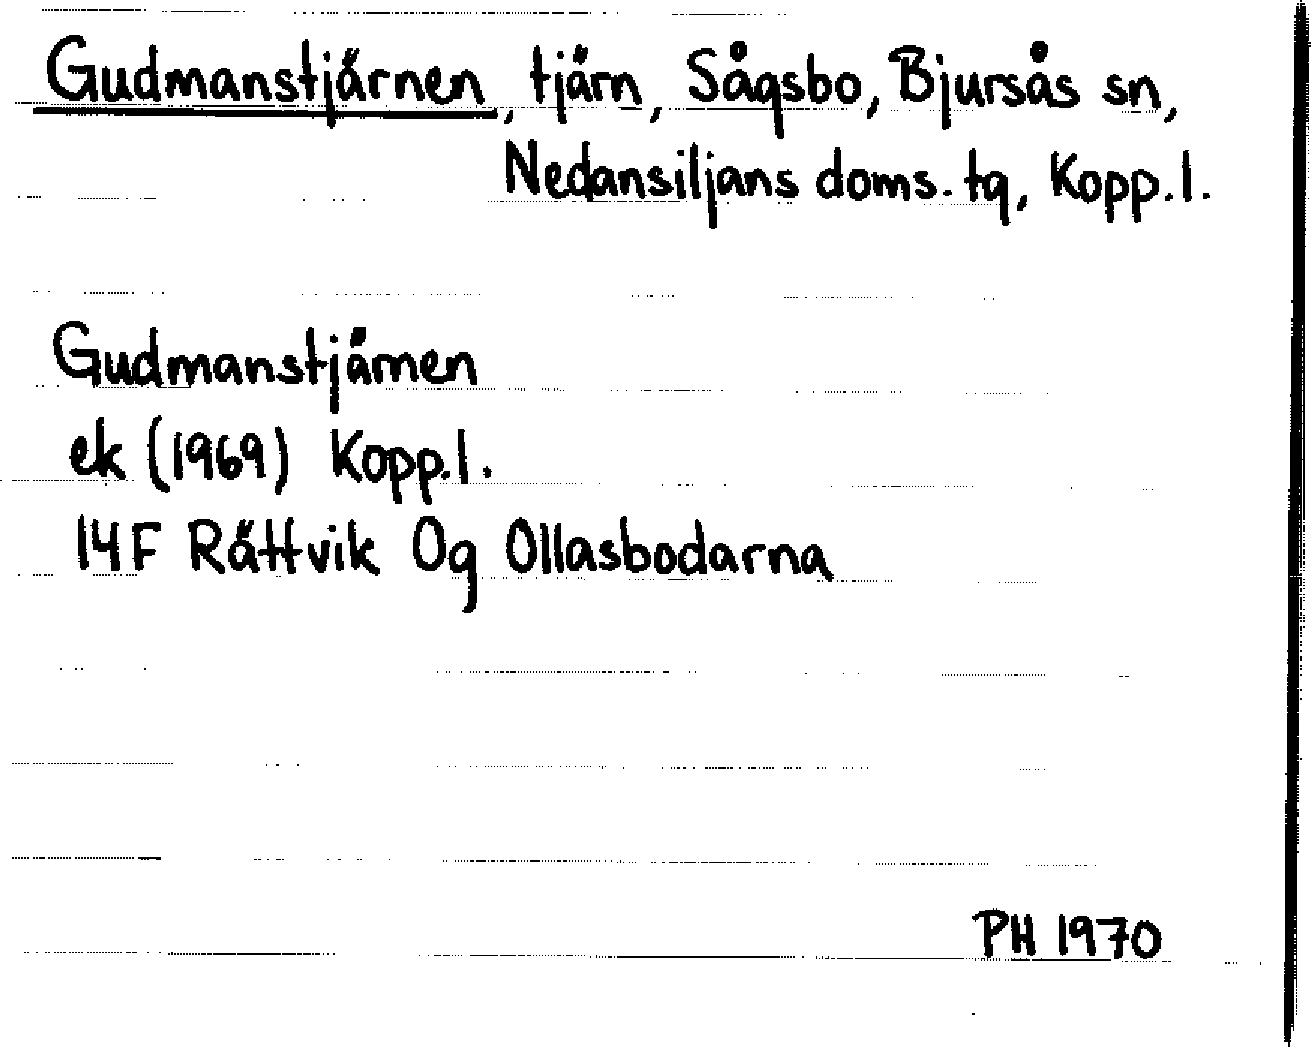 Gudmanstjärnen, tjärn, Sågsbo, Bjursås sn,
Nedansiljans doms. tg, Kopp. l.
Gudmanstjärnen
ek (1969) Kopp. l.
14F Rättvik 0g Ollasbodarna
PH 1970